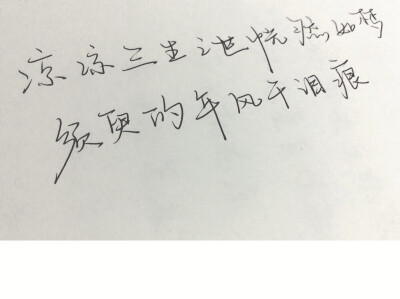 凉凉三生三世恍然如梦
须臾的年风干泪痕